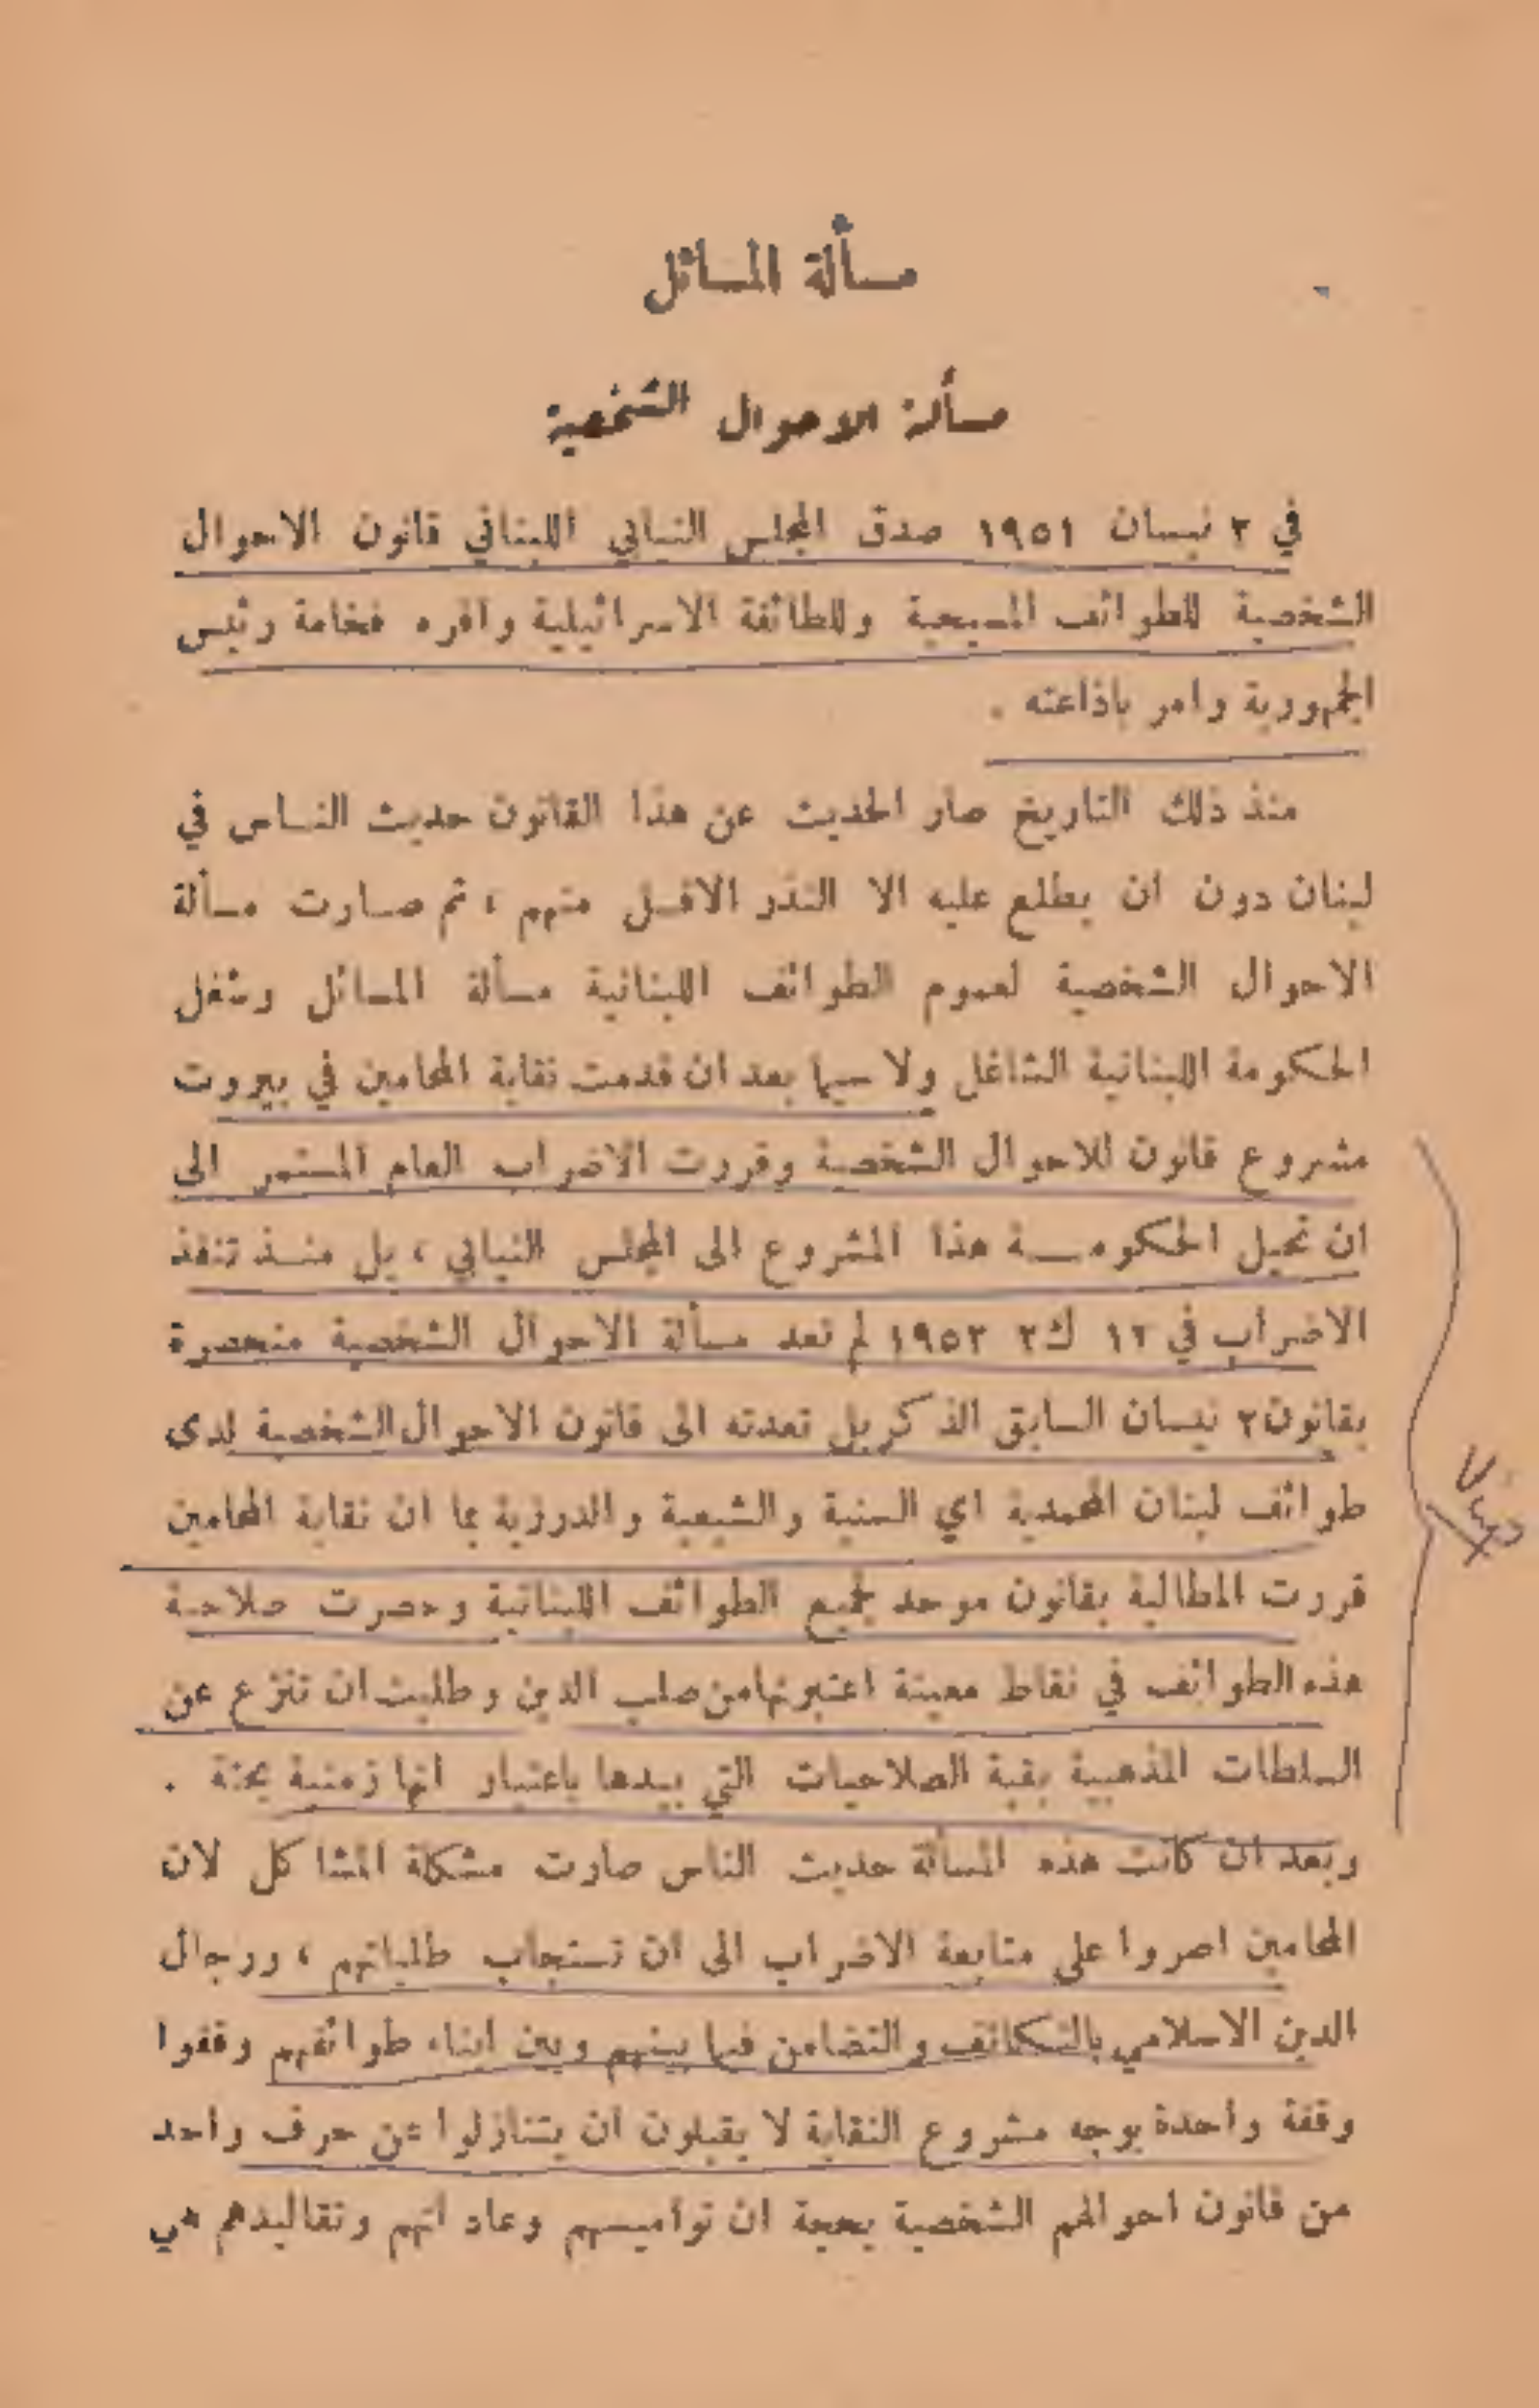 مسألة المسائل
مسألة الاحوال الشخصية
في ٢ نيسان ١٩٥١ صدق المجلس النيابي اللبناني قانون الاحوال
الشخصية للطوائف المسيحية وللطائفة الاسرائيلية واقره فخامة رئيس
الجمهورية وامر باذاعته .
منذ ذلك التاريخ صار الحديث عن هذا القانون حديث النـاس في
لبنان دون ان يطلع عليه الا النذر الاقـل منهم ، ثم صـارت مسألة
الاحوال الشخصية لعموم الطوائف اللبنانية مسألة المسائل وشغل
الحكومة اللبنانية الشاغل ولا سيما بعد ان قدمت نقابة المحامين في بيروت
مشروع قانون للاحوال الشخصية وقررت الاضراب العام المستمر الى
ان تحيل الحكومــة هذا المشروع الى المجلس النيابي ، بل منـذ تنفذ
الاضراب في ١٢ ك٢ ١٩٥٢ لم تعد مسألة الاحوال الشخصية منحصرة
بقانون ٢ نيسان السابق الذكر بل تعدته الى قانون الاحوال الشخصية لدى
طوائف لبنان المحمدية اي السنية والشيعية والدرزية بما ان نقابة المحامين
قررت المطالبة بقانون موحد لجميع الطوائف اللبنانية وحصرت صلاحية
هذه الطوائف في نقاط معينة اعتبرتها من صلب الدين وطلبت ان تنزع عن
السلطات المذهبية بقية الصلاحيات التي بيدها باعتبار انها زمنية بحتة .
وبعد ان كانت هذه المسألة حديث الناس صارت مشكلة المشاكل لان
المحامين اصروا على متابعة الاضراب الى ان تستجاب طلباتهم ، ورجال
الدين الاسلامي بالتكاتف والتضامن فيما بينهم وبين ابناء طوائفهم وقفوا
وقفة واحدة بوجه مشروع النقابة لا يقبلون ان يتنازلوا عن حرف واحد
من قانون احوالهم الشخصية بحجة ان نواميسهم وعاداتهم وتقاليدهم هي